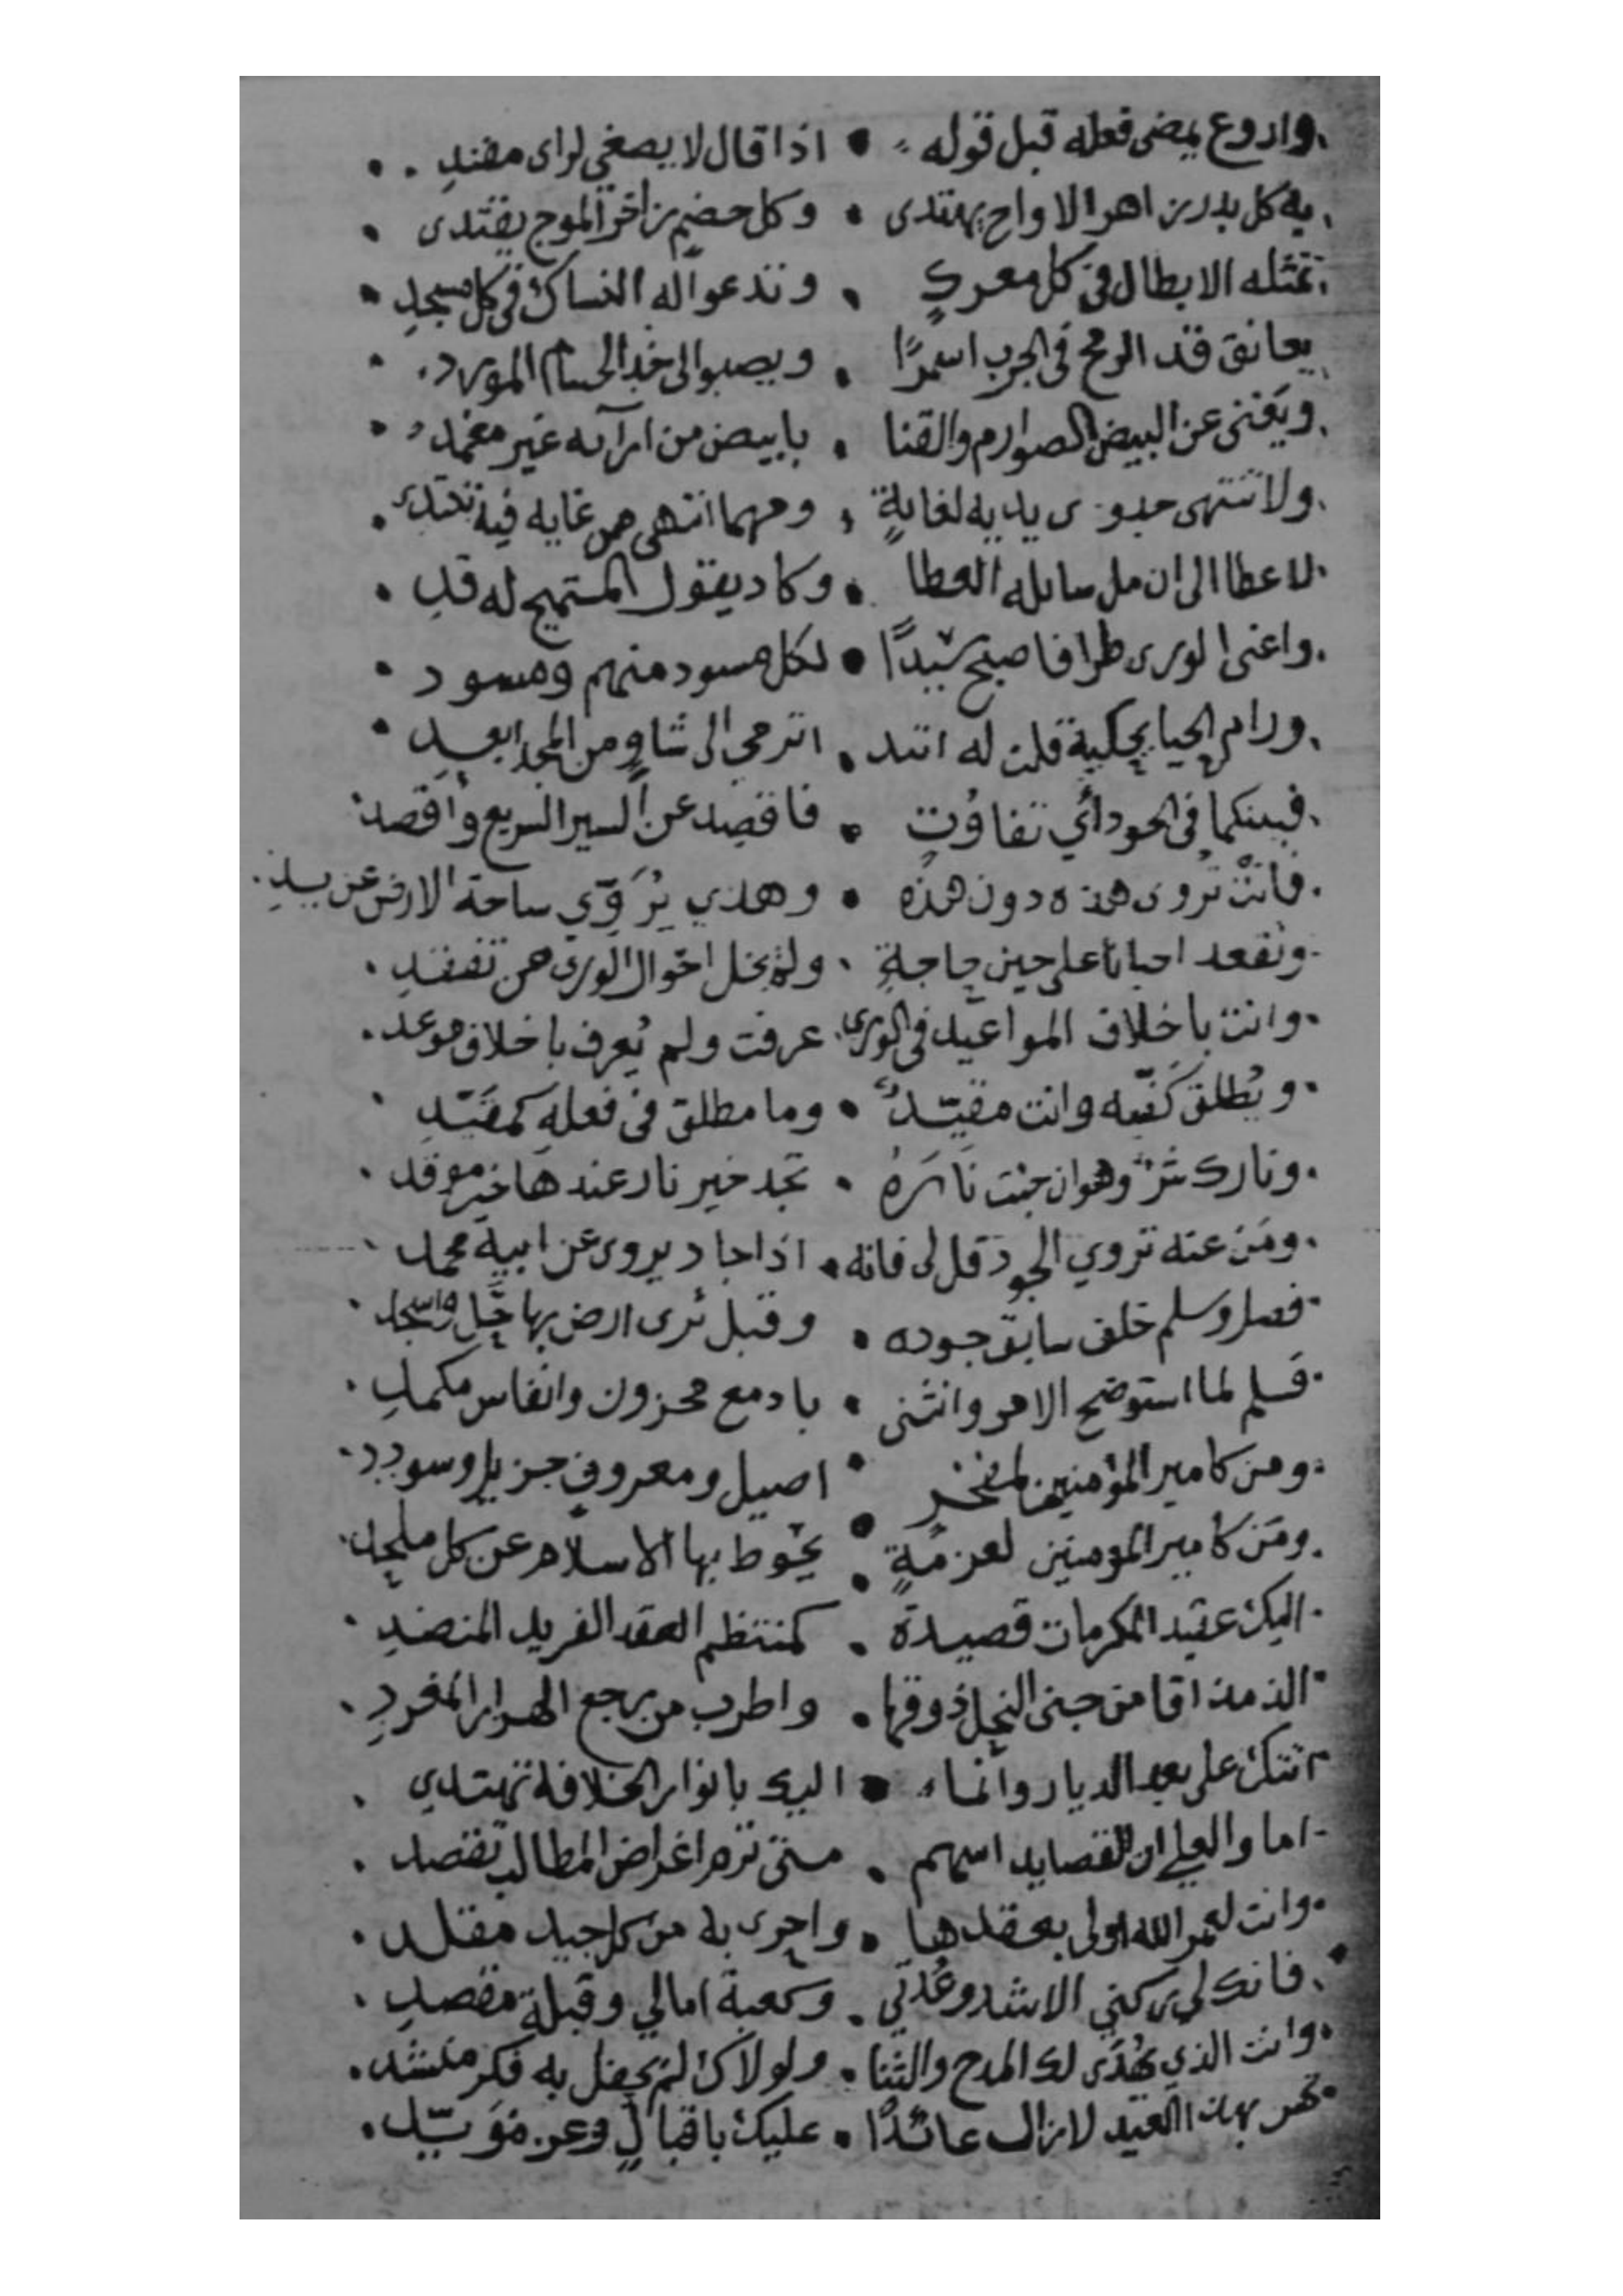 واروع يمضى فعله قبل قوله • اذا قال لا يصغى لراى مفندِ
به كل بدر زاهر الاواح يهتدى • وكل خضم زاخر الموج يقتدى
تمثله الابطال فى كل معركٍ • وتدعوا له النساك فى كل مسجدِ
يعانق قد الرمح فى الحرب اسمرًا • ويصبوا الى خد الحسام المورد
ويغنى عن البيض الصوارم والقنا • بابيض من ارآئه غير مغمد
ولا تنتهى جدوى يديه لغايةٍ • ومهما انتهى من غايه فيه تبتدى
لاعطا الى ان مل سايله العطا • وكاد يقول المستميح له قدِ
واغنى الورى طرا فاصبح سيدًا • لكل مسود منهم ومسود
ورام الحيا يحكيه قلت له اتئد • اترمى الى شاوٍ من المجد ابعدِ
فبينكما فى الجود أي تفاوُتٍ • فاقصِد عن السير السريع وأقصد
فانت تُروى هذه دون هذه • وهذي يُرَوّي ساحة الارض عن يدِ
وتقعد احيانا على حين حاجةٍ • ولم يخل احوال الورى من تفقدِ
وانت باخلاف المواعيد فى الورى • عرفت ولم يُعرف باخلاف موعد
ويُطلق كفّيه وانت مقيّدٌ • وما مطلق فى فعلهِ كمقَيّدِ
ونارك شرٌ وهو ان جئت نارهُ • تجد خير نار عندها خير موقد
ومَن عنه تروي الجود قل لى فانه • اذا جاد يروى عن ابيه محمد
فصل وسلم خلف سابق جوده • وقبل ثرى ارض بها حَل واسجد
فسلم لما استوضح الامر وانثنى • بادمع محزون وانفاس مكمدِ
ومن كامير المؤمنين لمفخرٍ • اصيل ومعروفٍ جزيلٍ وسودد
ومَن كامير المومنين لعزمةٍ • يحوط بها الاسلام عن كل ملحد
اليك عقيد المكرمات قصيدة • كمنتظم العقد الفريد المنضدِ
الذ مذاقا من جنى النحل ذوقها • واطرب من رجع الهزار المغردِ
اتتك على بعد الديار وانما • اليك بانوار الخلافة تهتدي
اما والعلي ان القصايد اسهم • متى ترم اغراض المطالب تقصد
وانت لعمر الله اولى بعقدها • واحرى به من كل جيد مقلد
فانك لي ركني الاشد وعُدتي • وكعبة امالي وقبلة مقصدِ
وانت الذي يُهدَى لك المدح والثنا • ولولاك لم يحفل به فكر منشد
بهذا العيد لا زال عائدًا • عليك باقبالٍ وعز مؤيّد